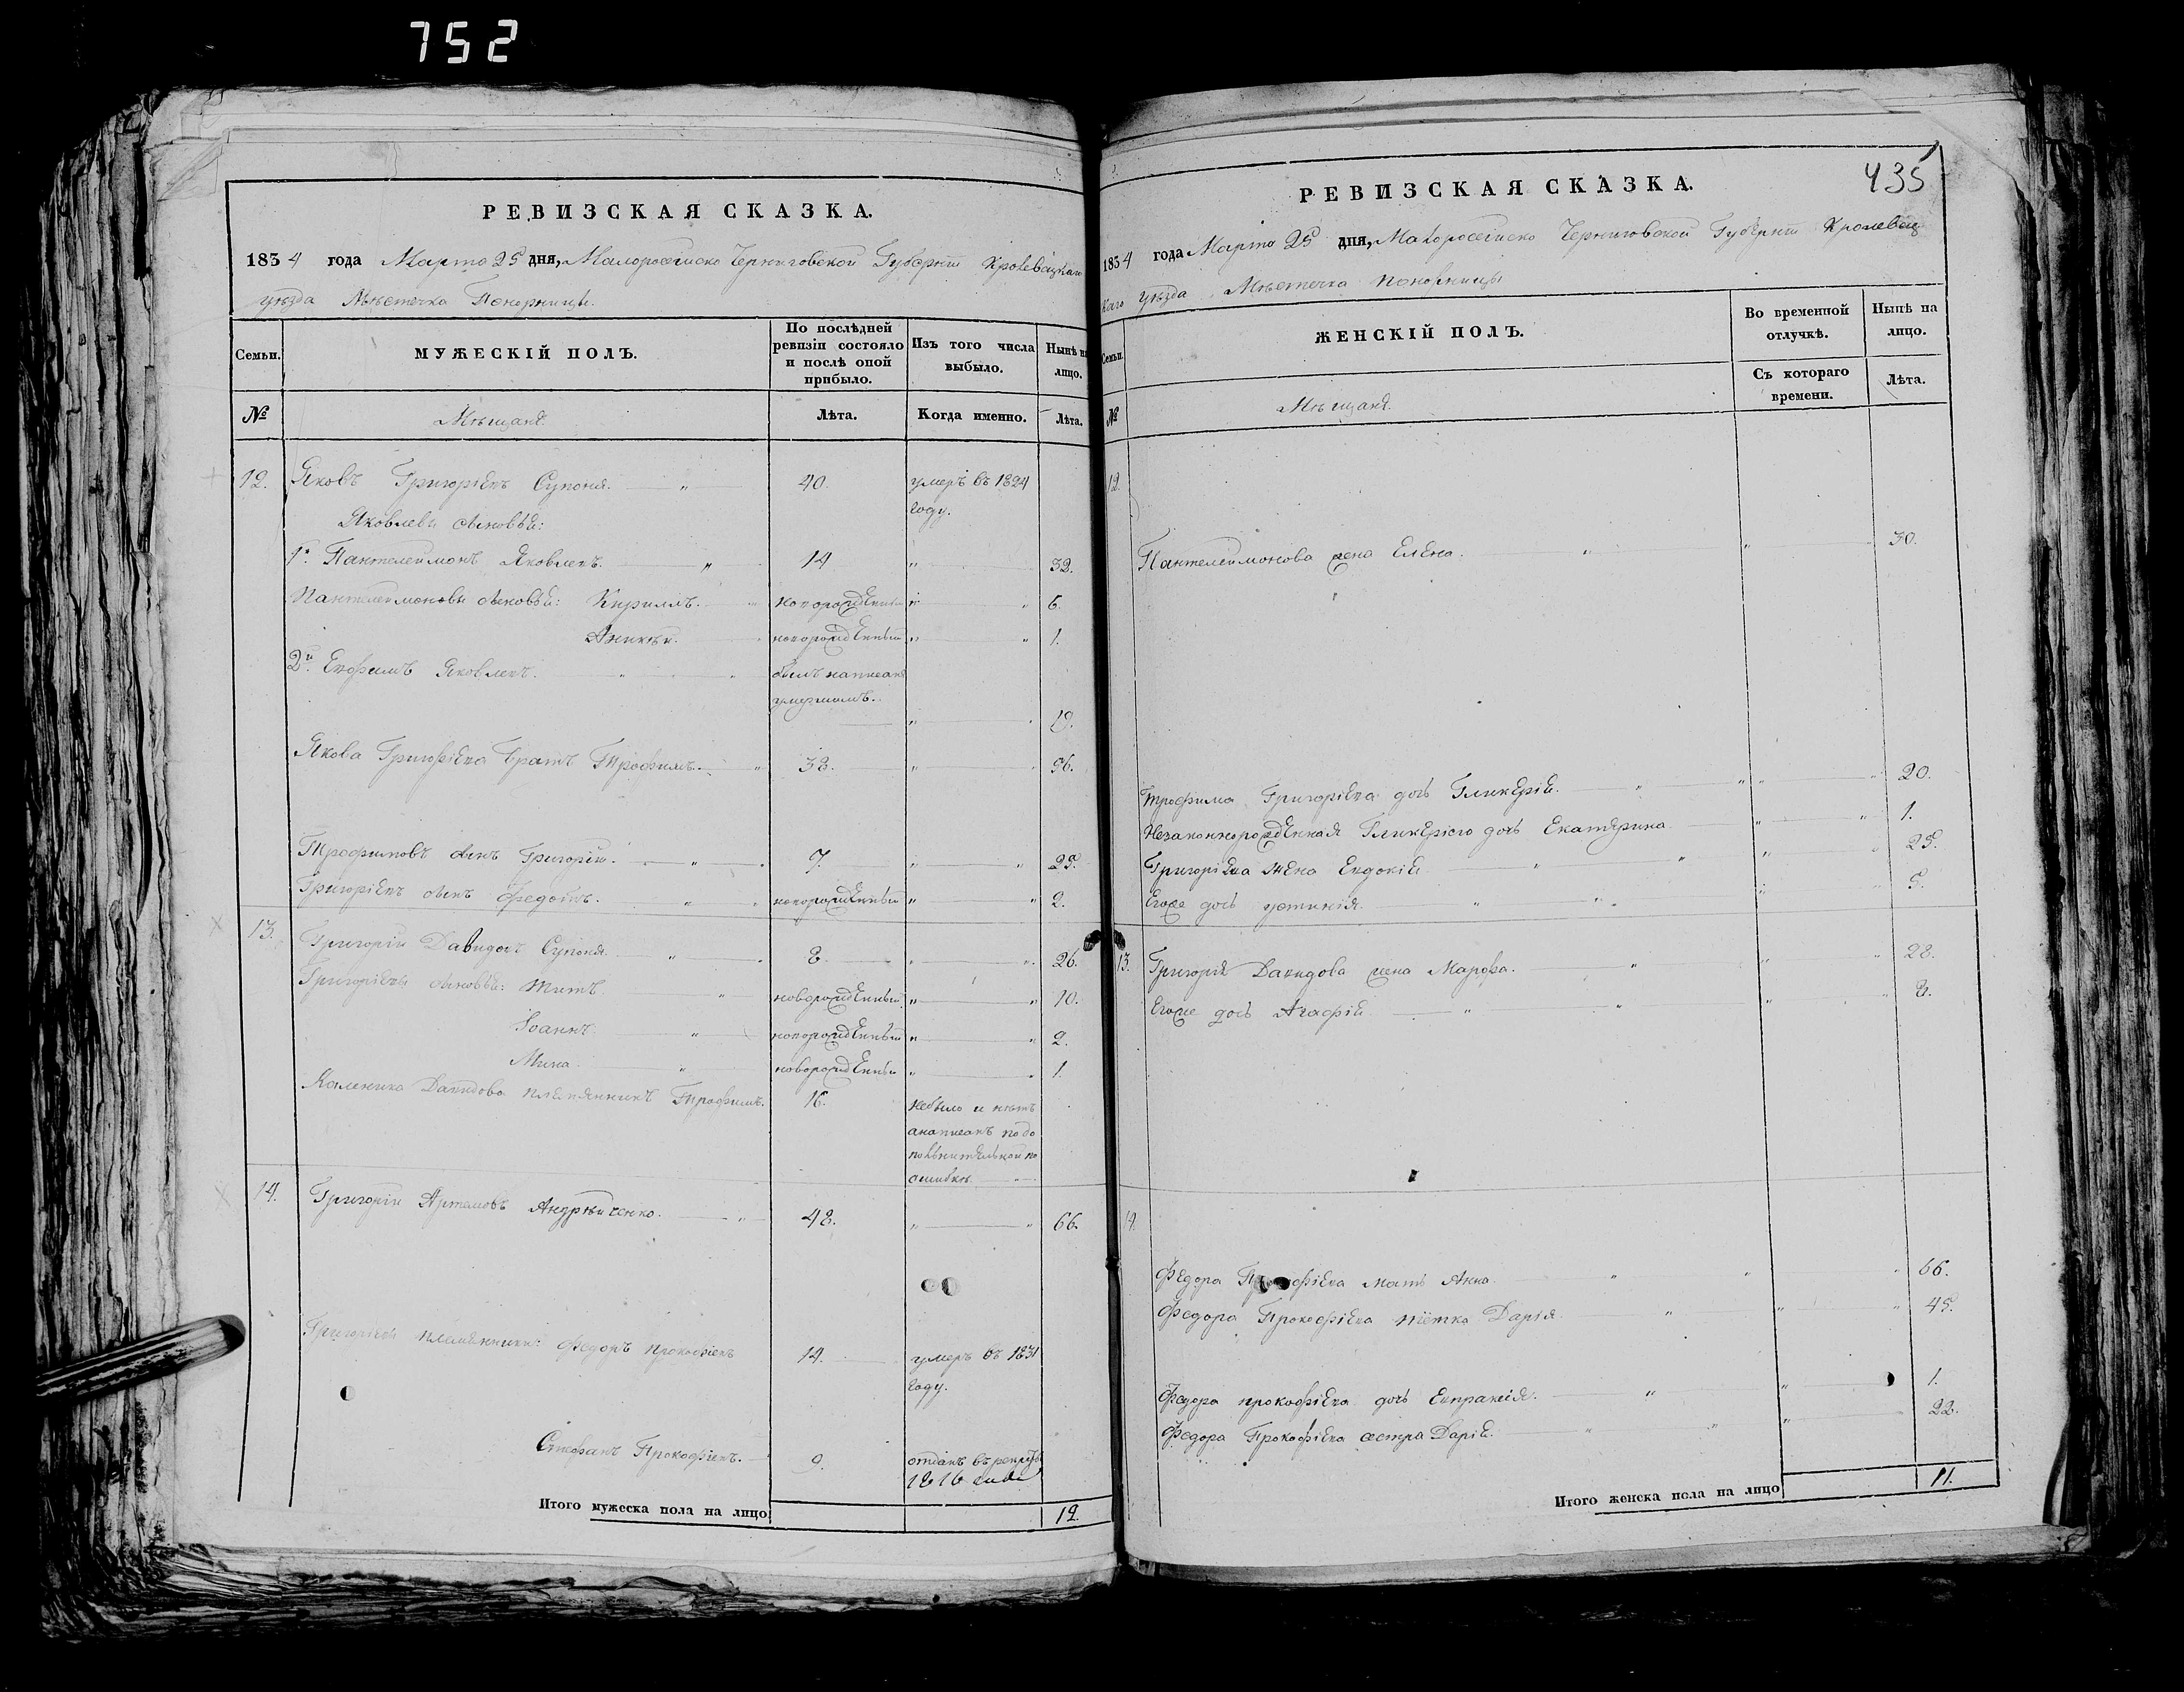 752
РЕВИЗСКАЯ СКАЗКА.
1834 года Марта 25 дня, Малороссійско Черниговской Губерніи Кролевецкаго
уѣзда Мѣстечка Понорницы.
Семьи.
МУЖЕСКІЙ ПОЛЪ.
По послѣдней ревизіи состояло и послѣ оной прибыло.
Изъ того числа выбыло.
Нынѣ на лицо.
№
Мѣщанѣ.
Лѣта.
Когда именно.
Лѣта.
12. Яковъ Григорієвъ Супоня. 40. умеръ въ 1824
году.
Яковлевы сыновья:
1й Пантелеймонъ Яковлевъ. 14 32.
Пантелеймоновы сыновья: Кириллъ. новорожденный 6.
Аникѣй. новорожденный 1.
2й Евфимъ Яковлевъ. былъ написанъ
умершимъ.
19.
Якова Григорієва братъ Трофимъ. 38. 56.
Трофимовъ сынъ Григорій. 7. 25.
Григорієвъ сынъ Федотъ. новорожденный 2.
13. Григорій Давидовъ Супоня. 8. 26.
Григорієвы сыновья: Титъ. новорожденный 10.
Іоаннъ. новорожденный 2.
Мина. новорожденный 1.
Каленика Давидова племянникъ Трофимъ. 16. небыло и нѣтъ
анаписанъ подо
полнительной по
ошибкѣ
14. Григорій Артемовъ Андрѣйченко. 48. 66.
Григорія племянники: Федоръ Прокофіевъ 14. умеръ въ 1831
году.
Стефанъ Прокофіевъ. 9. отданъ въ рекруты
1816 года
Итого мужеска пола на лицо 12.
435
РЕВИЗСКАЯ СКАЗКА.
1834 года Марта 25 дня, Малороссійско Черниговской Губерніи Кролевец
каго уѣзда Мѣстечка Понорницы
Семьи.
ЖЕНСКІЙ ПОЛЪ.
Во временной отлучкѣ.
Нынѣ на лицо.
Съ котораго времени.
Лѣта.
№
Мѣщанѣ.
12.
Пантелеймонова жена Елена. 30.
Трофима Григорієва дочь Гликерія. 20.
Незаконнорожденная Гликеріи дочь Екатерина 1.
Григорієва жена Евдокія 25.
Егоже дочь Устинія. 5.
13. Григорія Давидова жена Марфа. 28.
Егоже дочь Агафія 8.
14.
Федора Прокофієва мать Анна. 66.
Федора Прокофієва тіотка Дарія 45.
Федора Прокофієва дочь Евпраксія. 1.
Федора Прокофієва сестра Дарія. 22.
Итого женска пола на лицо 11.